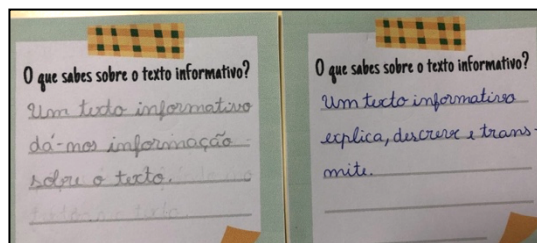 O que sabes sobre o texto informativo?
Um texto informativo
dá-nos informação
sobre o texto.
O que sabes sobre o texto informativo?
Um texto informativo
explica, descreve e trans-
mite.